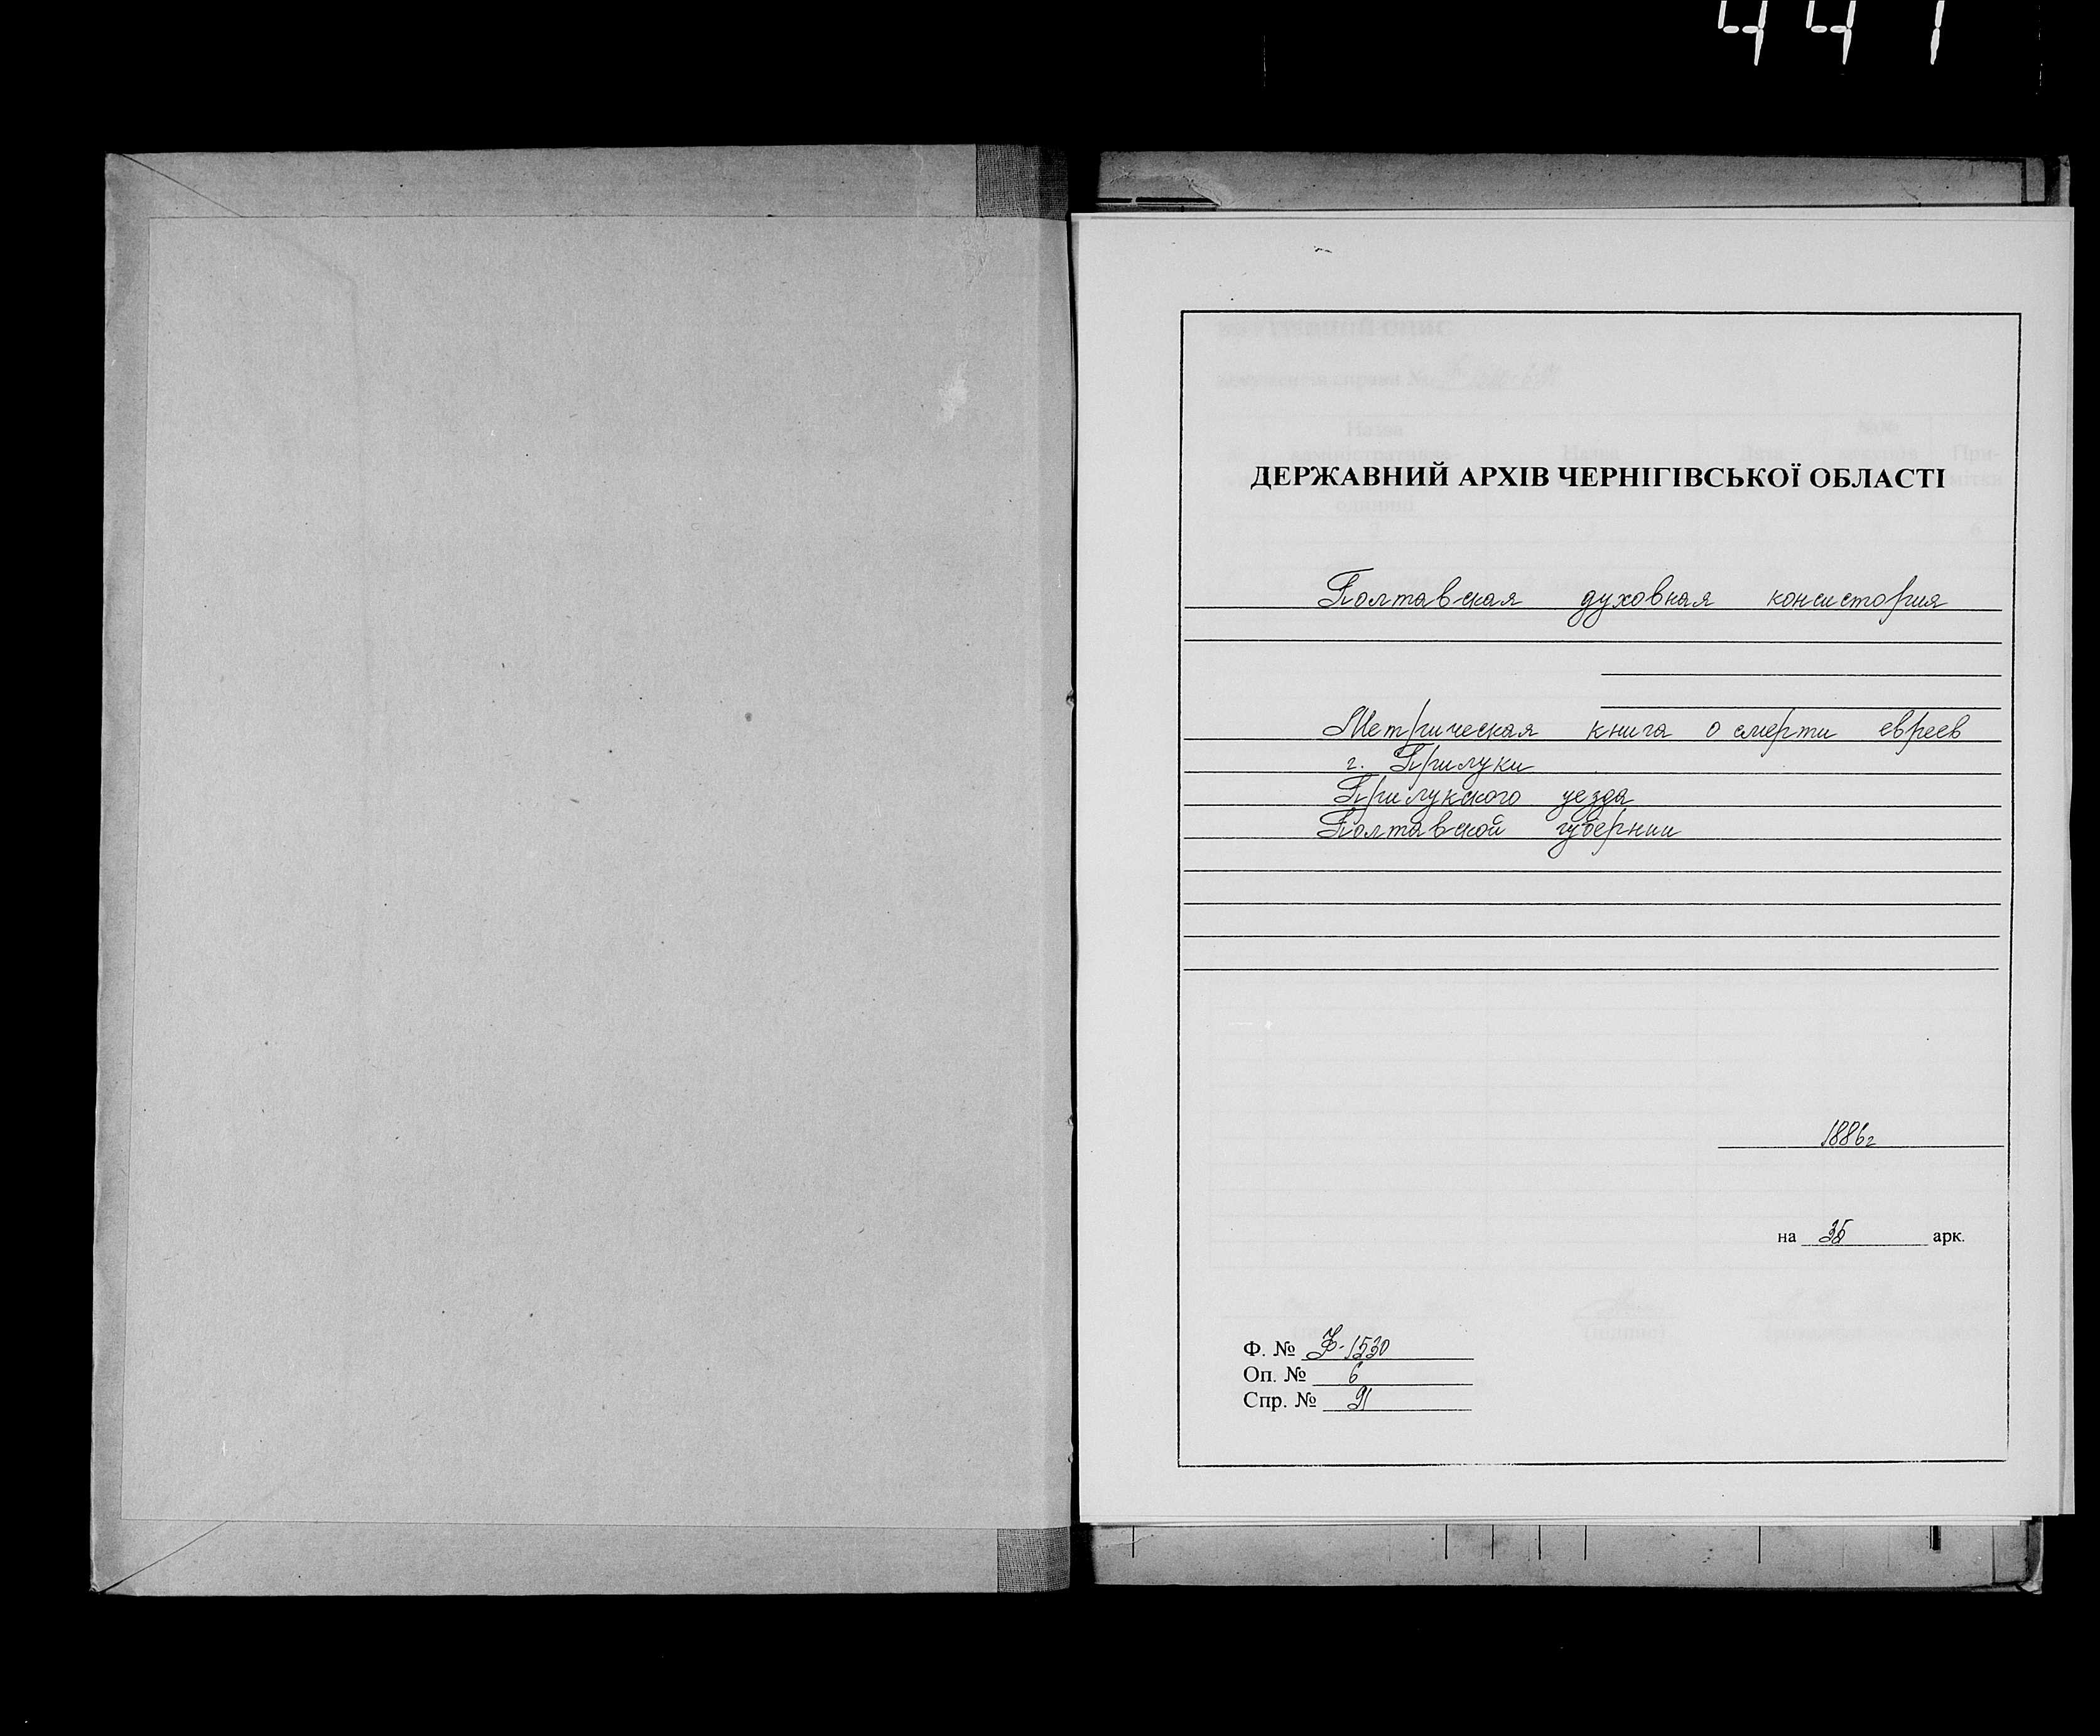 441
ДЕРЖАВНИЙ АРХІВ ЧЕРНІГІВСЬКОЇ ОБЛАСТІ
Полтавская духовная консистория
Метрическая книга о смерти евреев
г. Прилуки
Прилукского уезда
Полтавской губернии
1886г
на 35 арк.
Ф. № Ф-1530
Оп. № 6
Спр. № 91